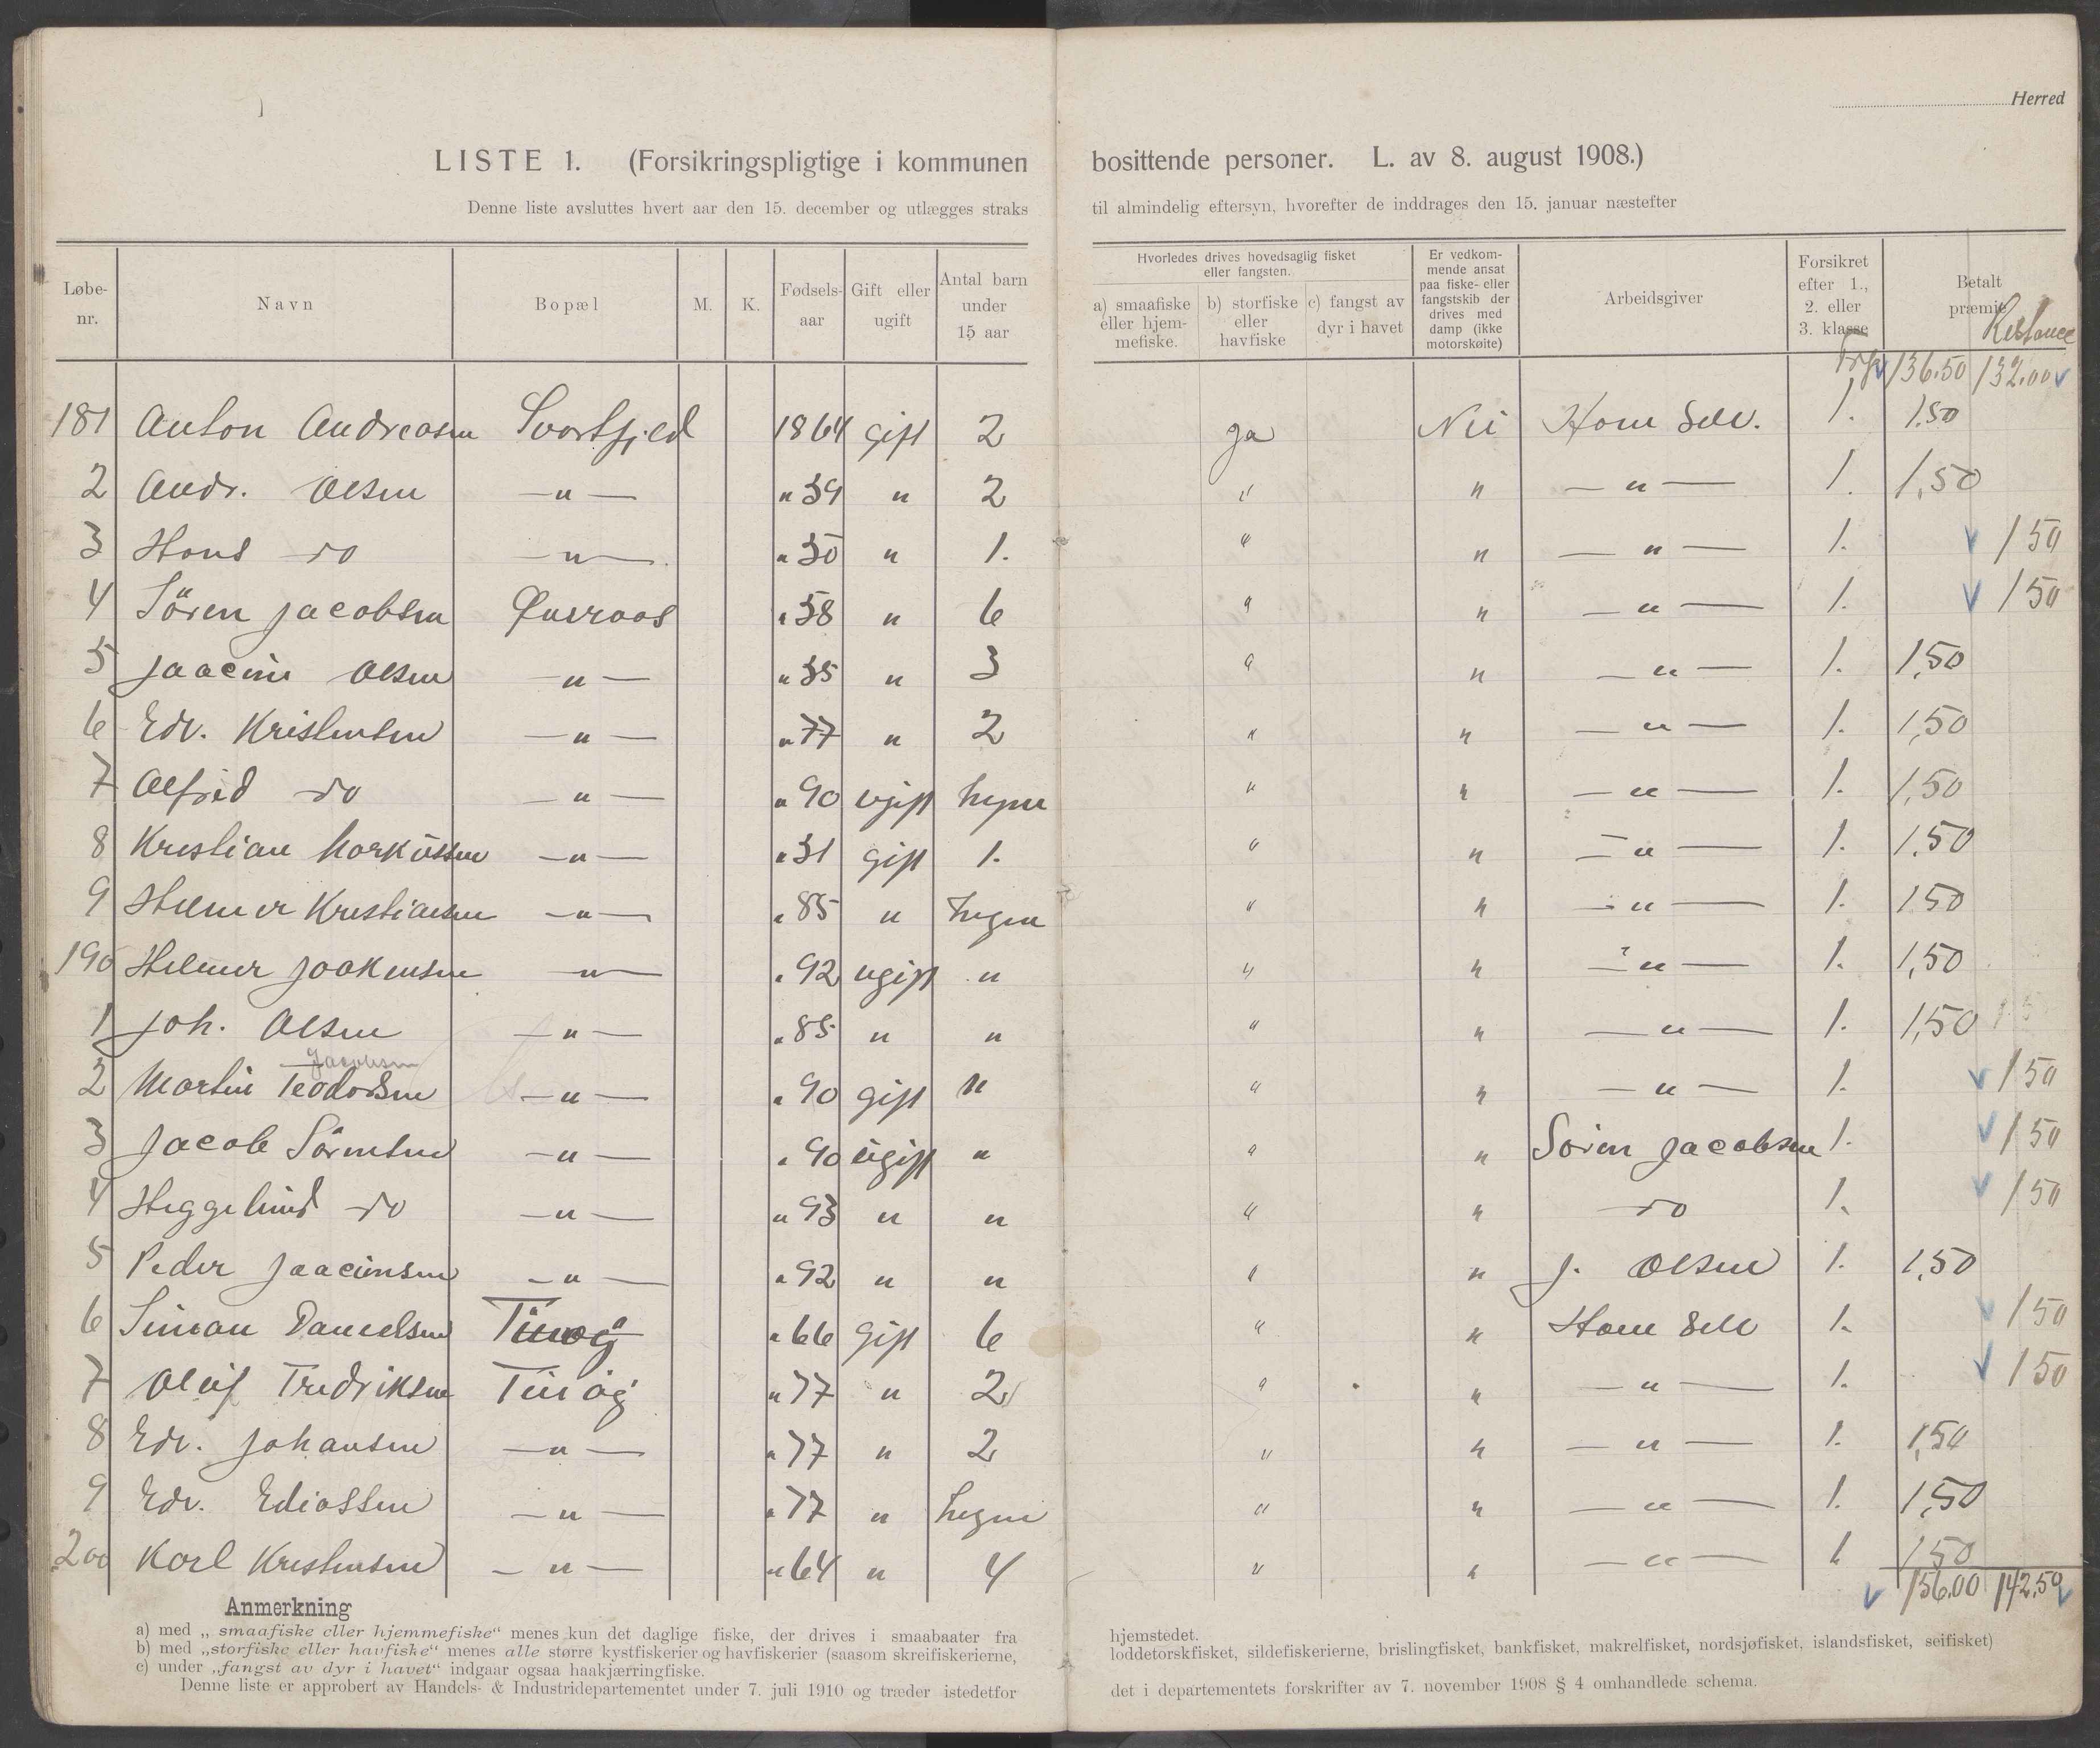 Herred
LISTE 1. (Forsikringspligtige i kommunen bosittende personer. L. av 8. august 1908.)
Denne liste avsluttes hvert aar den 15. december og utlægges straks til almindelig eftersyn, hvorefter de inddrages den 15. januar næstefter
Løbe-nr. Navn Bopæl M. K. Fødsels-aar Gift eller ugift Antal barn under 15 aar Hvorledes drives hovedsaglig fisket eller fangsten. a) smaafiske eller hjem-mefiske. b) storfiske eller havfiske c) fangst av dyr i havet Er vedkom-mende ansat paa fiske- eller fangstskib der drives med damp (ikke motorskøite) Arbeidsgiver Forsikret efter 1., 2. eller 3. klasse Betalt præmie Restance
136.50 132.00
181 Anton Andreasen Svartfjeld 1864 gift 2 ja Nei Ham Selv. 1. 1.50
2 Andr. Olsen —"— " 59 " 2 " " —"— 1. 1,50
3 Hans do —"— " 50 " 1. " " —"— 1. 1 50
4 Sören Jacobsen Qveraas " 58 " 6 " " —"— 1. 1 50
5 Joacim Olsen —"— " 55 " 3 " " —"— 1. 1,50
6 Edv. Kristensen —"— " 77 " 2 " " —"— 1. 1,50
7 Alfred do —"— " 90 ugift Ingen " " —"— 1. 1,50
8 Kristian Markussen —"— " 51 gift 1. " " —"— 1. 1.50
9 Hilmer Kristiansen —"— " 85 " Ingen " " —"— 1. 1 50
190 Hilmer Joakimsen —"— " 92 ugift " " " —"— 1. 1,50
1 Joh. Olsen —"— " 85 " " " " —"— 1. 1,50
Jacobsen
2 Martin Teodorsen —"— " 90 gift " " " —"— 1. 1 50
3 Jacob Sörensen —"— " 90 ugift " " " Sören Jacobsen 1. 1 50
4 Heggelund do —"— " 93 " " " " do 1. 1 50
5 Peder Joacimsen —"— " 92 " " " " J. Olsen 1. 1,50
6 Simon Danielsen " 66 gift 6 " " Ham Selv 1. 1 50
7 Oluf Fredriksen " 77 " 2 " " —"— 1. 1 50
8 Edv. Johansen —"— " 77 " 2 " " —"— 1. 1,50
9 Edv. Ediassen —"— " 77 " Ingen " " —"— 1. 1,50
200 Karl Kristensen —"— " 64 " 4 " " —"— 1. 1 50
156.00 142.50
Anmerkning
a) med „smaafiske eller hjemmefiske“ menes kun det daglige fiske, der drives i smaabaater fra hjemstedet.
b) med „storfiske eller havfiske“ menes alle større kystfiskerier og havfiskerier (saasom skreifiskerierne, loddetorskfisket, sildefiskerierne, brislingfisket, bankfisket, makrelfisket, nordsjøfisket, islandsfisket, seifisket)
c) under „fangst av dyr i havet“ indgaar ogsaa haakjærringfiske.
Denne liste er approbert av Handels- & Industridepartementet under 7. juli 1910 og træder istedetfor det i departementets forskrifter av 7. november 1908 § 4 omhandlede schema.